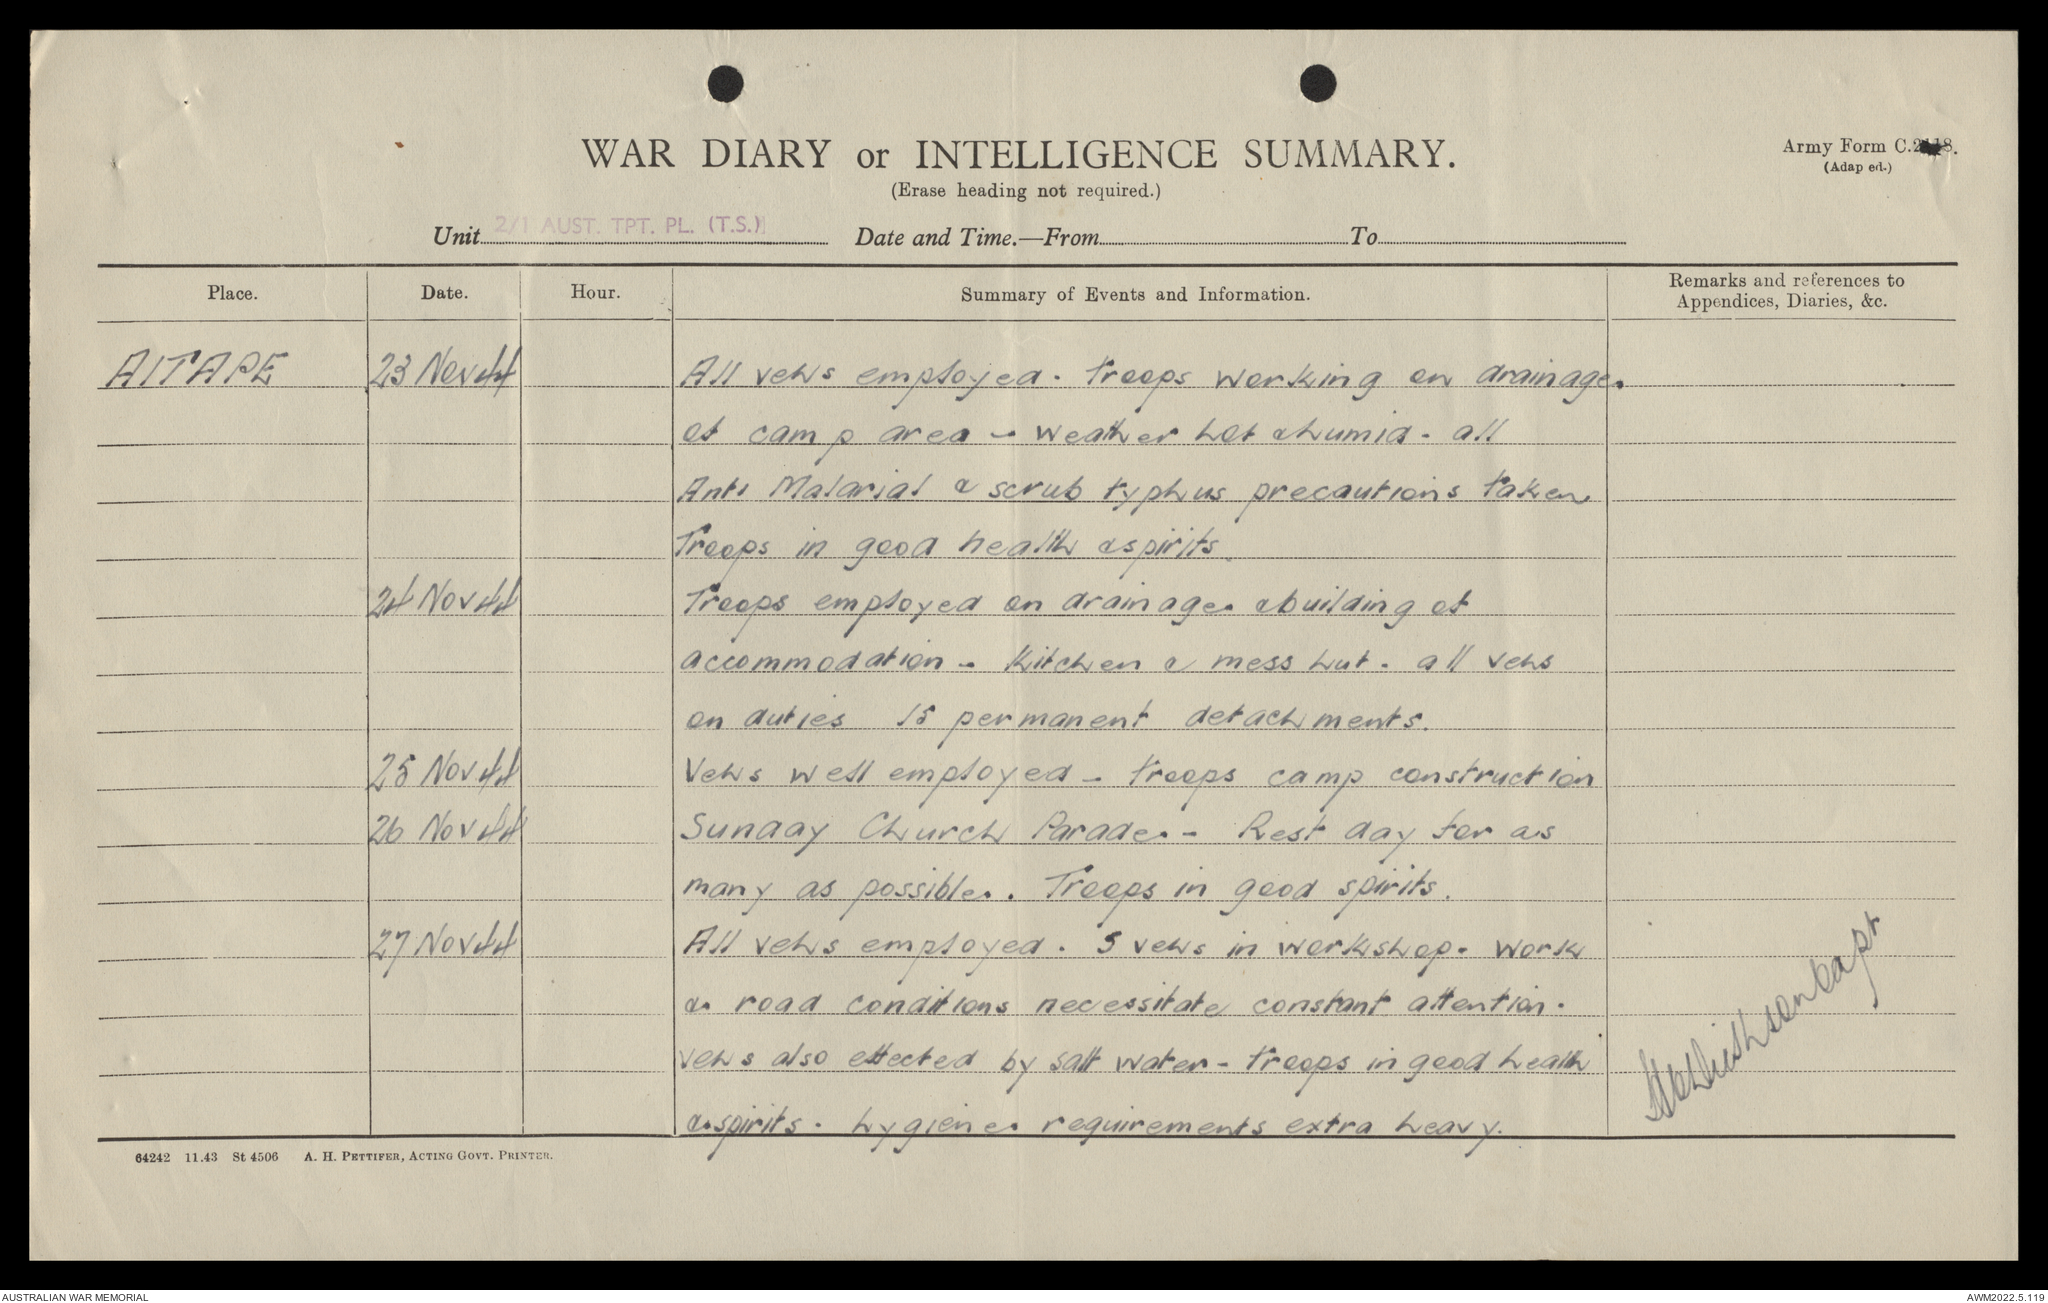 WAR DIARY or INTELLIGENCE SUMMARY.
(Erase heading not required.)
Army Form C.2118.
(Adap ed.)
Unit 2/1 AUST. TPT. PL. (T.S.) Date and Time.—From To
Place. Date. Hour. Summary of Events and Information. Remarks and references to Appendices, Diaries, &c.
AITAPE 23 Nov 44 All vehs employed. Troops working on drainage
of camp area - weather hot & humid - all
Anti Malarial & scrub typhus precautions taken
Troops in good health & spirits
24 Nov 44 Troops employed on drainage & building of
accommodation - kitchen & mess hut. all vehs
on duties 15 permanent detachments.
25 Nov 44 Vehs well employed - troops camp construction
26 Nov 44 Sunday Church Parade - Rest day for as
many as possible. Troops in good spirits.
27 Nov 44 All vehs employed. 5 vehs in workshop. Work
& road conditions necessitate constant attention.
vehs also effected by salt water - troops in good health
& spirits. hygiene requirements extra heavy.
Capt
64242 11.43 St 4506 A. H. PETTIFER, ACTING GOVT. PRINTER.
AUSTRALIAN WAR MEMORIAL AWM2022.5.119